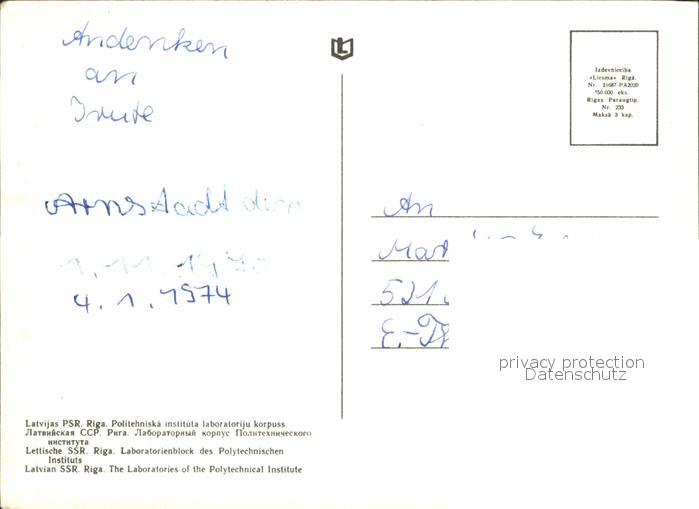 Andenken
an
Irute
Arnstadt den
1.11.1970
4.1.1974
Izdevniecība
«Liesma» Rīgā.
Nr. 21687-PA2020
150 000 eks.
Rīgas Paraugtip.
Nr. 233
Maksā 3 kap.
An
Mat
521
E.-Th
privacy protection
Datenschutz
Latvijas PSR. Rīga. Politehniskā institūta laboratoriju korpuss
Латвийская ССР. Рига. Лабораторный корпус Политехнического
института
Lettische SSR. Riga. Laboratorienblock des Polytechnischen
Instituts
Latvian SSR. Riga. The Laboratories of the Polytechnical Institute